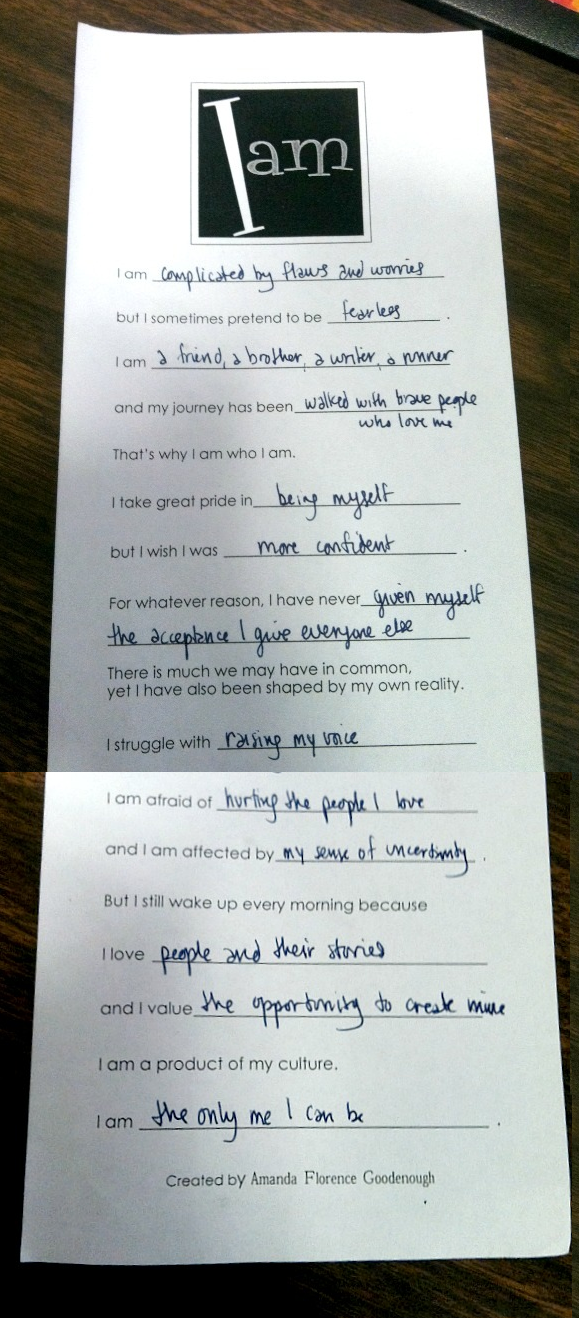 I am
I am complicated by flaws and worries
but I sometimes pretend to be fearless .
I am a friend, a brother, a writer, a runner
and my journey has been walked with brave people
who love me
That's why I am who I am.
I take great pride in being myself
but I wish I was more confident .
For whatever reason, I have never given myself
the acceptance I give everyone else
There is much we may have in common,
yet I have also been shaped by my own reality.
I struggle with raising my voice
I am afraid of hurting the people I love
and I am affected by my sense of uncertainty .
But I still wake up every morning because
I love people and their stories
and I value the opportunity to create mine
I am a product of my culture.
I am the only me I can be .
Created by Amanda Florence Goodenough